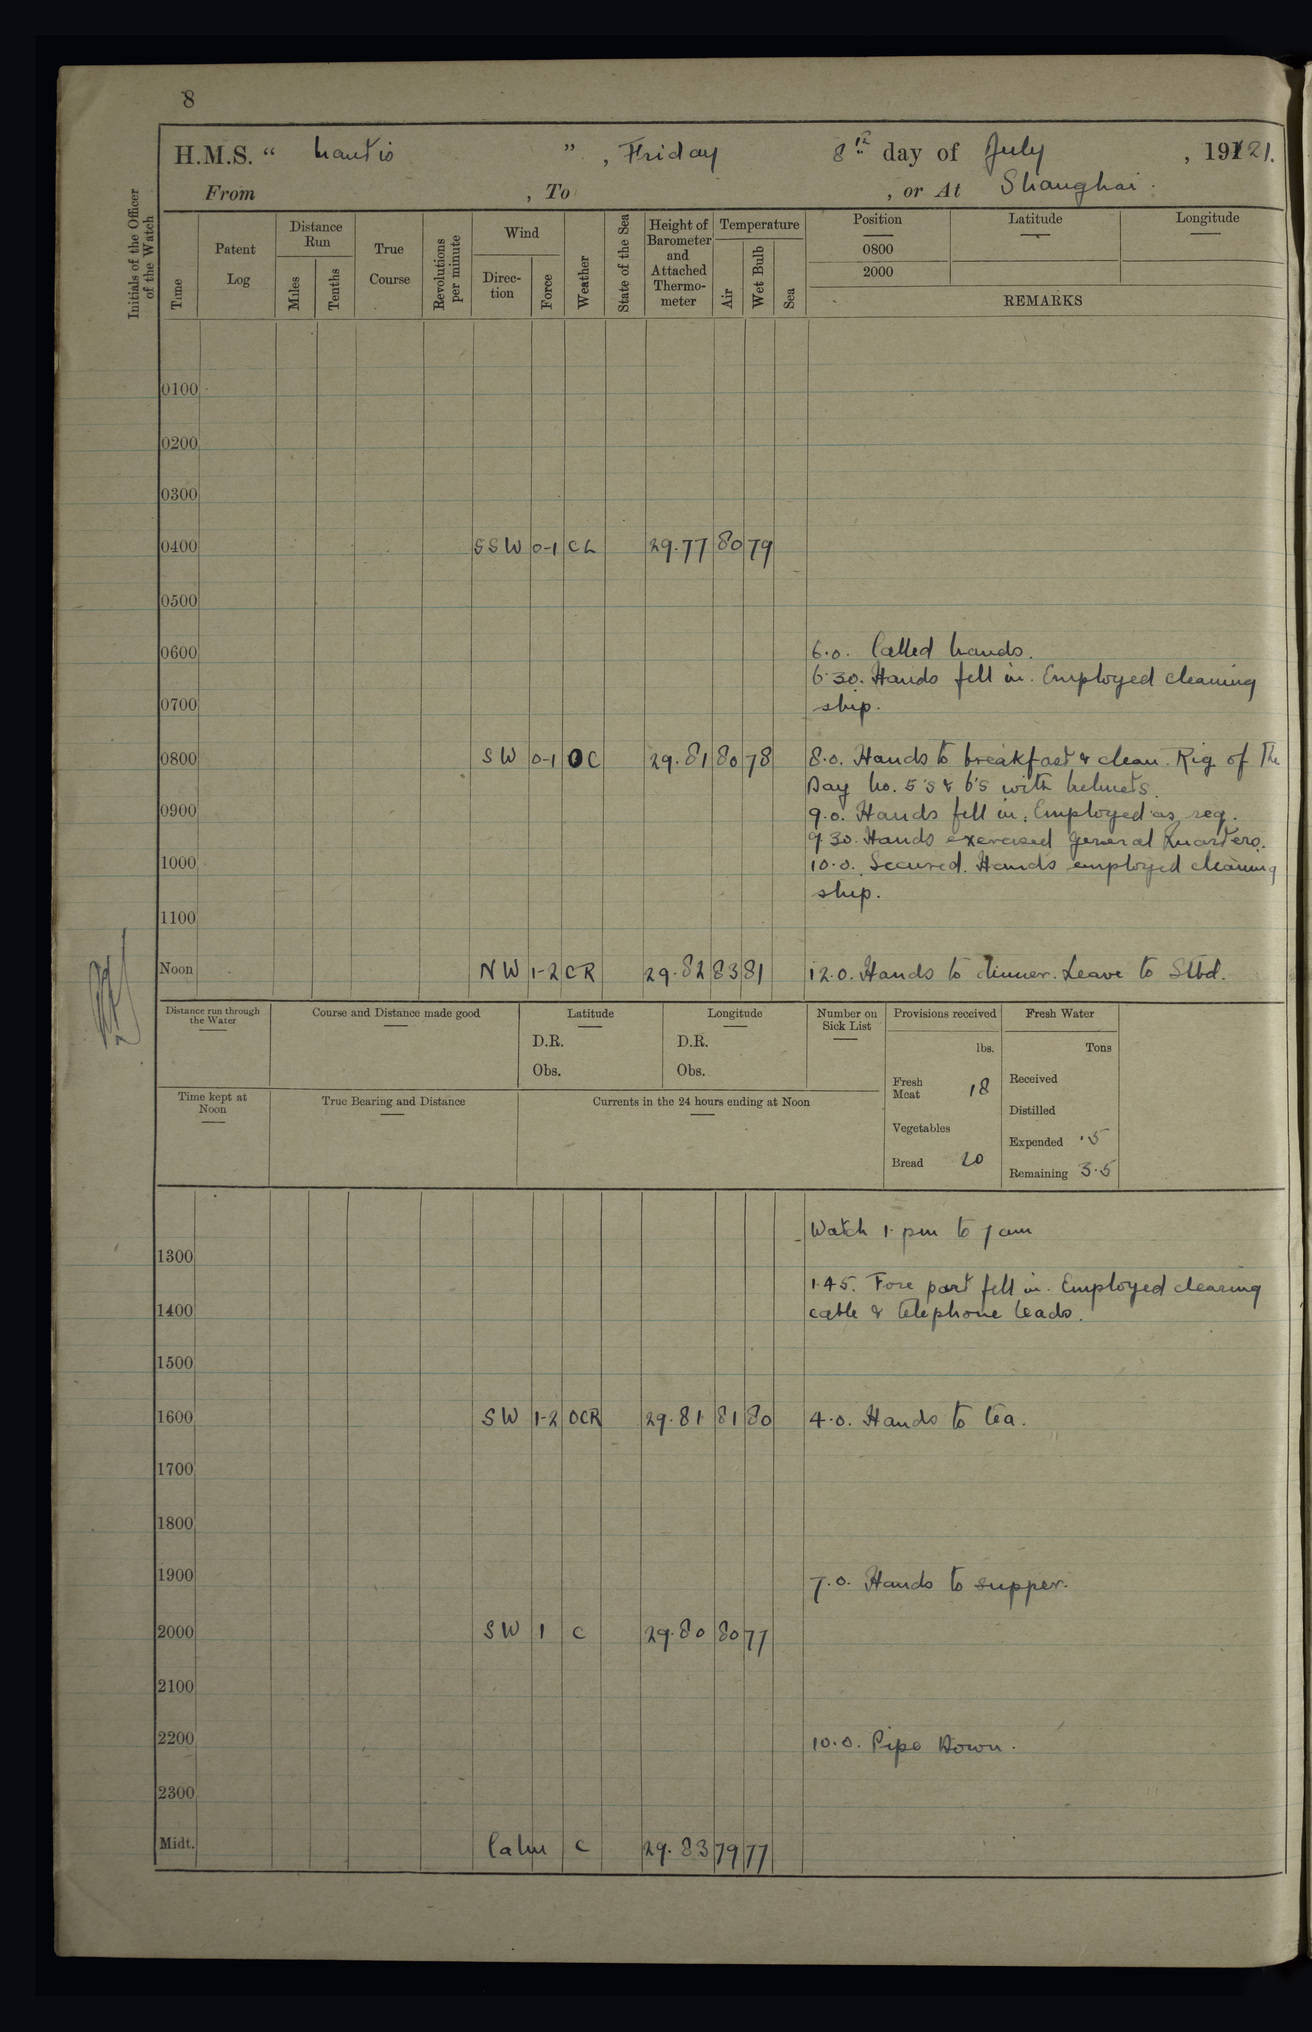 8
H.M.S. “ Mantis ” , Friday 8th day of July , 1921.
From , To , or At Shanghai.
Initials of the Officer of the Watch
Time
Patent Log
Distance Run
Miles
Tenths
True Course
Revolutions per minute
Wind
Direc-tion
Force
Weather
State of the Sea
Height of Barometer and Attached Thermo-meter
Temperature
Air
Wet Bulb
Sea
Position
Latitude
Longitude
0800
2000
REMARKS
0100
0200
0300
0400 SSW 0-1 CL 29.77 80 79
0500
0600 6.0. Called hands.
6.30. Hands fell in. Employed cleaning
0700 ship.
0800 SW 0-1 OC 29.81 80 78 8.0. Hands to breakfast & clean. Rig of The
Day No. 5's & 6's with helmets.
0900 9.0. Hands fell in. Employed as req.
9.30. Hands exercised General Quarters.
1000 10.0. Secured. Hands employed cleaning
ship.
1100
Noon NW 1-2 CR 29.82 83 81 12.0. Hands to dinner. Leave to Stbd.
Distance run through the Water
Course and Distance made good
Latitude
D.R.
Obs.
Longitude
D.R.
Obs.
Number on Sick List
Provisions received
lbs.
Fresh Meat 18
Vegetables
Bread 20
Fresh Water
Tons
Received
Distilled
Expended .5
Remaining 3.5
Time kept at Noon
True Bearing and Distance
Currents in the 24 hours ending at Noon
Watch 1. pm to 7 am
1300
1.45. Fore part fell in. Employed clearing
1400 cable & telephone leads.
1500
1600 SW 1-2 OCR 29.81 81 80 4.0. Hands to tea.
1700
1800
1900 7.0. Hands to supper.
2000 SW 1 C 29.80 80 77
2100
2200 10.0. Pipe Down.
2300
Midt. Calm C 29.83 79 77